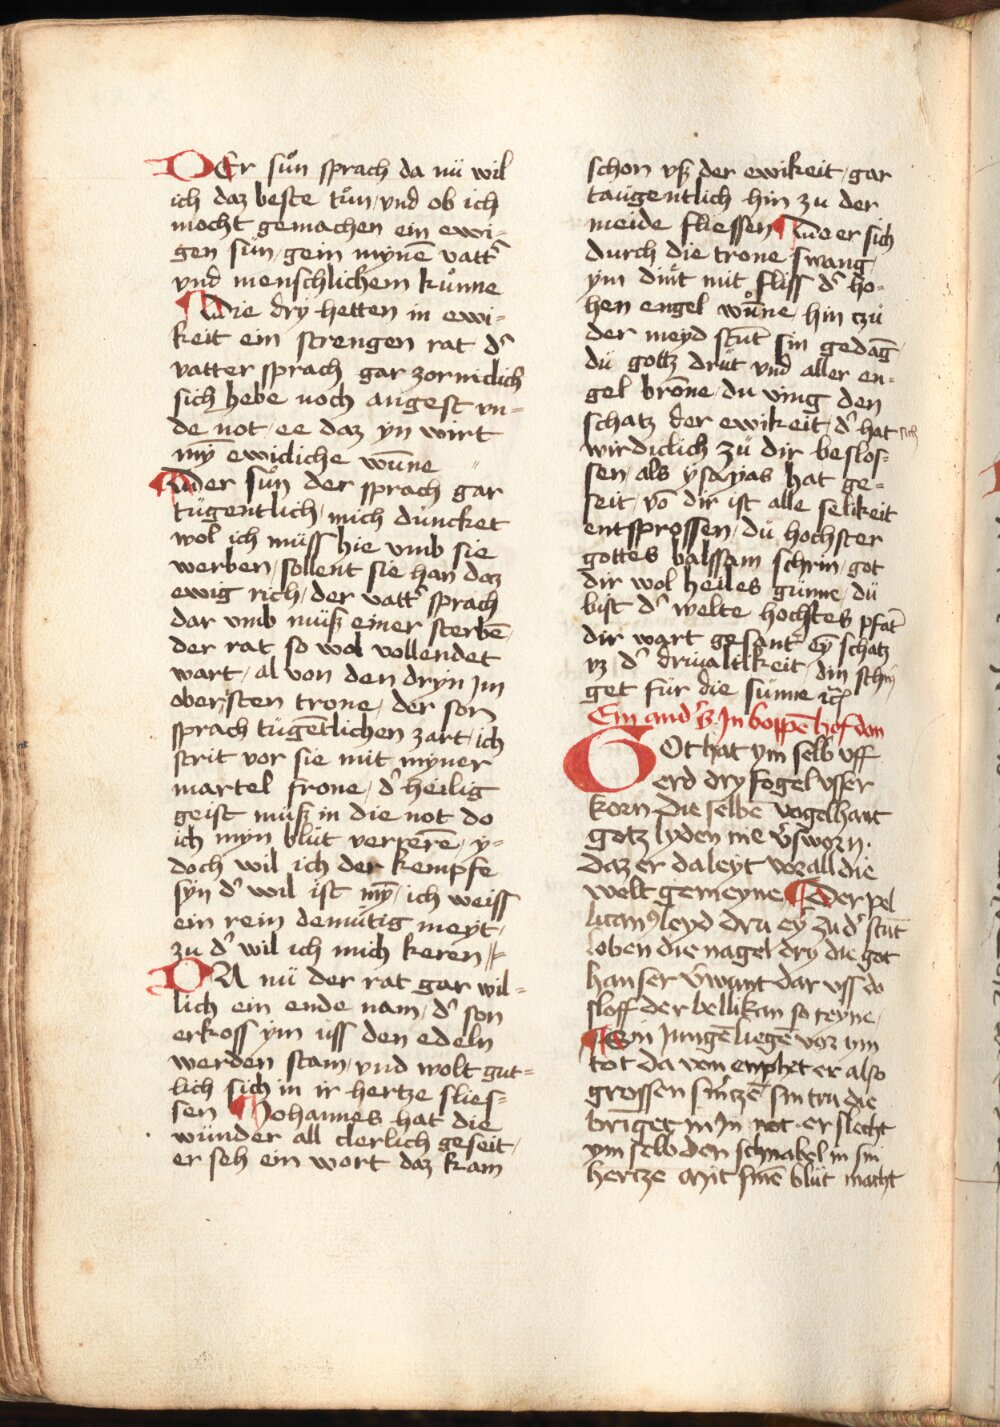 DEr sůn sprach da nü wil
ich daz beste tůn / vnd ob ich
mocht gemachen ein ewi-
gen sün / gein mynē vatt᷑
vnd menschlichem kůnne
Die dry hetten in ewi-
keit ein strengen rat d᷑
vatter sprach gar zorniclich
sich hebe noch angest vn-
de not / ee daz yn wirt
mȳ ewicliche wūne
Der sůn der sprach gar
tügentlich / mich duncket
wol ich müss hie vmb sie
werben / sollent sie han daz
ewig rich / der vatt᷑ sprach
dar vmb müß einer sterbē
der rat so wol vollendet
wart / al von den dryn jm
obersten trone / der son
sprach tügētlichen zart / ich
strit vor sie mit myner
martel frone / d᷑ heilig
geist müß in die not do
ich myn blüt verrerē / y-
doch wil ich der kempfe
syn d᷑ wil ist mȳ / ich weiss
ein rein demütig meyt /
zu d᷑ wil ich mich keren
DA nü der rat gar wil-
lich ein ende nam / d᷑ son
erkoss ym uss den edeln
werden stam / vnd wolt gut-
lich sich in ir hertze slies-
sen Johannes hat die
wünder all clerlich geseit /
er seh ein wort daz kam
schon vß der ewikeit / gar
taügentlich hin zu der
meide fliessen Do er sich
durch die trone swang /
ym dint mit fliss d᷑ ho-
hen engel wůne / hin tzü
der meyd stūt sin gedāg
dü gottz drüt vnd aller en-
gel brone / du ving den
schatz der ewikeit / d᷑ hat sich
wirdiclich zü dir beslos-
sen als ysayas hat ge-
seit / vō dir ist alle selikeit
entsprossen / dü hochster
gottes balssam schrin / got
dir wol heiles günne / dü
bist d᷑ welte hochstes pfat
dir wart gesant eȳ schatz
vz d᷑ driualtikeit / din schin
get für die sünne ꝛc
Ein and᷑s In boppē hof don
GOt hat ym selb uff
erd dry fogel vsser
korn Die selbē vogel hant
gotz lyden me v᷑sworn.
Daz er da leyt vor all die
welt gemeyne Der pel
licanꝰ leyd dru eȳ zu d᷑ stūt
loben die nagel dry die got
han ser v᷑wunt dar uss do
sloff der bellikan so reyne /
Sin jungē liegē vor ym
tot da von enphet er also
grossen smtzē sin tru die
bringet in jn not · er slecht
ym selb den schnabel in sin
hertze Mit sinē blüt macht